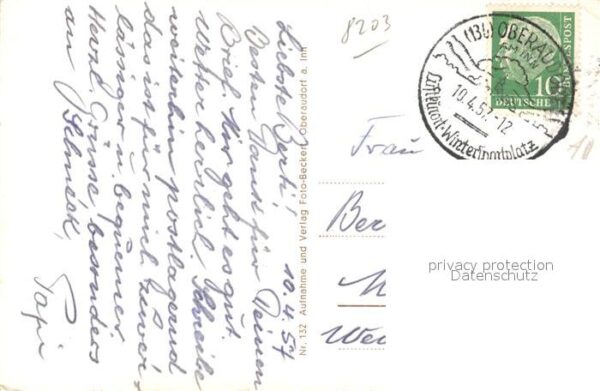 10.4.57
Liebste Berti!
Besten Dank für Deinen
Brief. Mir geht es gut.
Wetter herrlich. Schreibe
weiterhin postlagernd
das ist für mich zuver-
lässiger u. bequemer
Herzl. Grüsse besonders
an
Papi
Nr. 132 Aufnahme und Verlag Foto-Beckert, Oberaudorf a. Inn
8203
(13b) OBERAU
AM INN
10.4.57-12
Luftkurort-Wintersportplatz
10
DEUTSCHE BUNDESPOST
Frau
Ber
M
We
privacy protection
Datenschutz